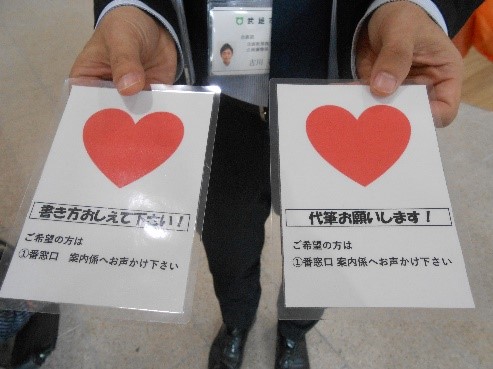 書き方おしえて下さい！
ご希望の方は
①番窓口　案内係へお声かけ下さい
代筆お願いします！
ご希望の方は
①番窓口 案内係へお声かけ下さい